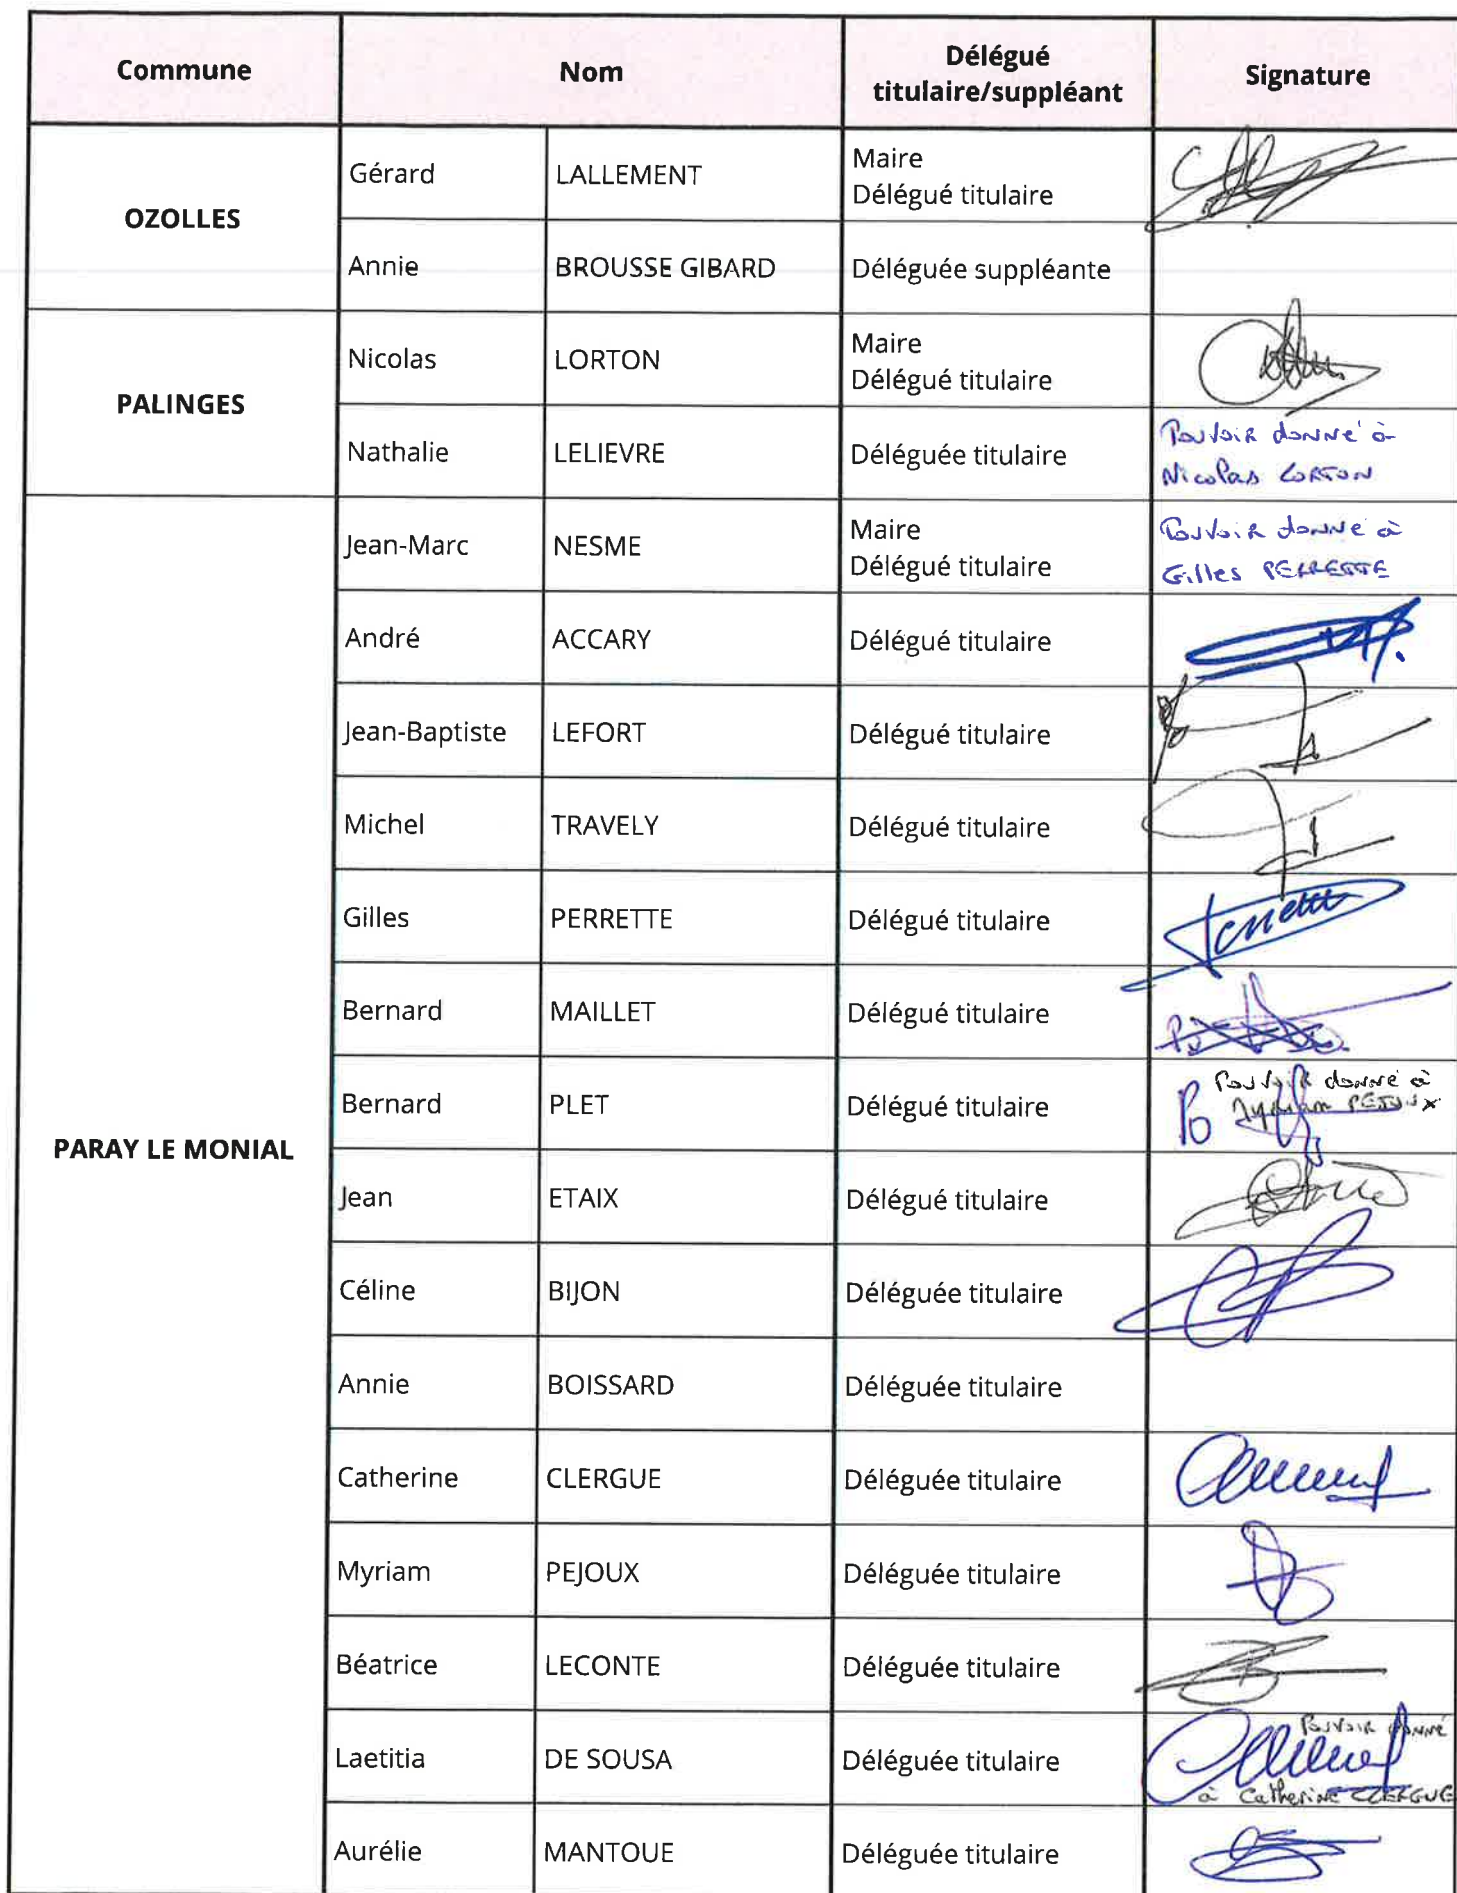 Commune Nom Délégué titulaire/suppléant Signature
OZOLLES
Gérard LALLEMENT Maire
Délégué titulaire
Annie BROUSSE GIBARD Déléguée suppléante
PALINGES
Nicolas LORTON Maire
Délégué titulaire
Nathalie LELIEVRE Déléguée titulaire
Pouvoir donné à
Nicolas LORTON
PARAY LE MONIAL
Jean-Marc NESME Maire
Délégué titulaire
Pouvoir donné à
Gilles PERRETTE
André ACCARY Délégué titulaire
Jean-Baptiste LEFORT Délégué titulaire
Michel TRAVELY Délégué titulaire
Gilles PERRETTE Délégué titulaire
Bernard MAILLET Délégué titulaire
Bernard PLET Délégué titulaire
Pouvoir donné à
Myriam PEJOUX
Jean ETAIX Délégué titulaire
Céline BIJON Déléguée titulaire
Annie BOISSARD Déléguée titulaire
Catherine CLERGUE Déléguée titulaire
Myriam PEJOUX Déléguée titulaire
Béatrice LECONTE Déléguée titulaire
Laetitia DE SOUSA Déléguée titulaire
Pouvoir donné
à Catherine CLERGUE
Aurélie MANTOUE Déléguée titulaire